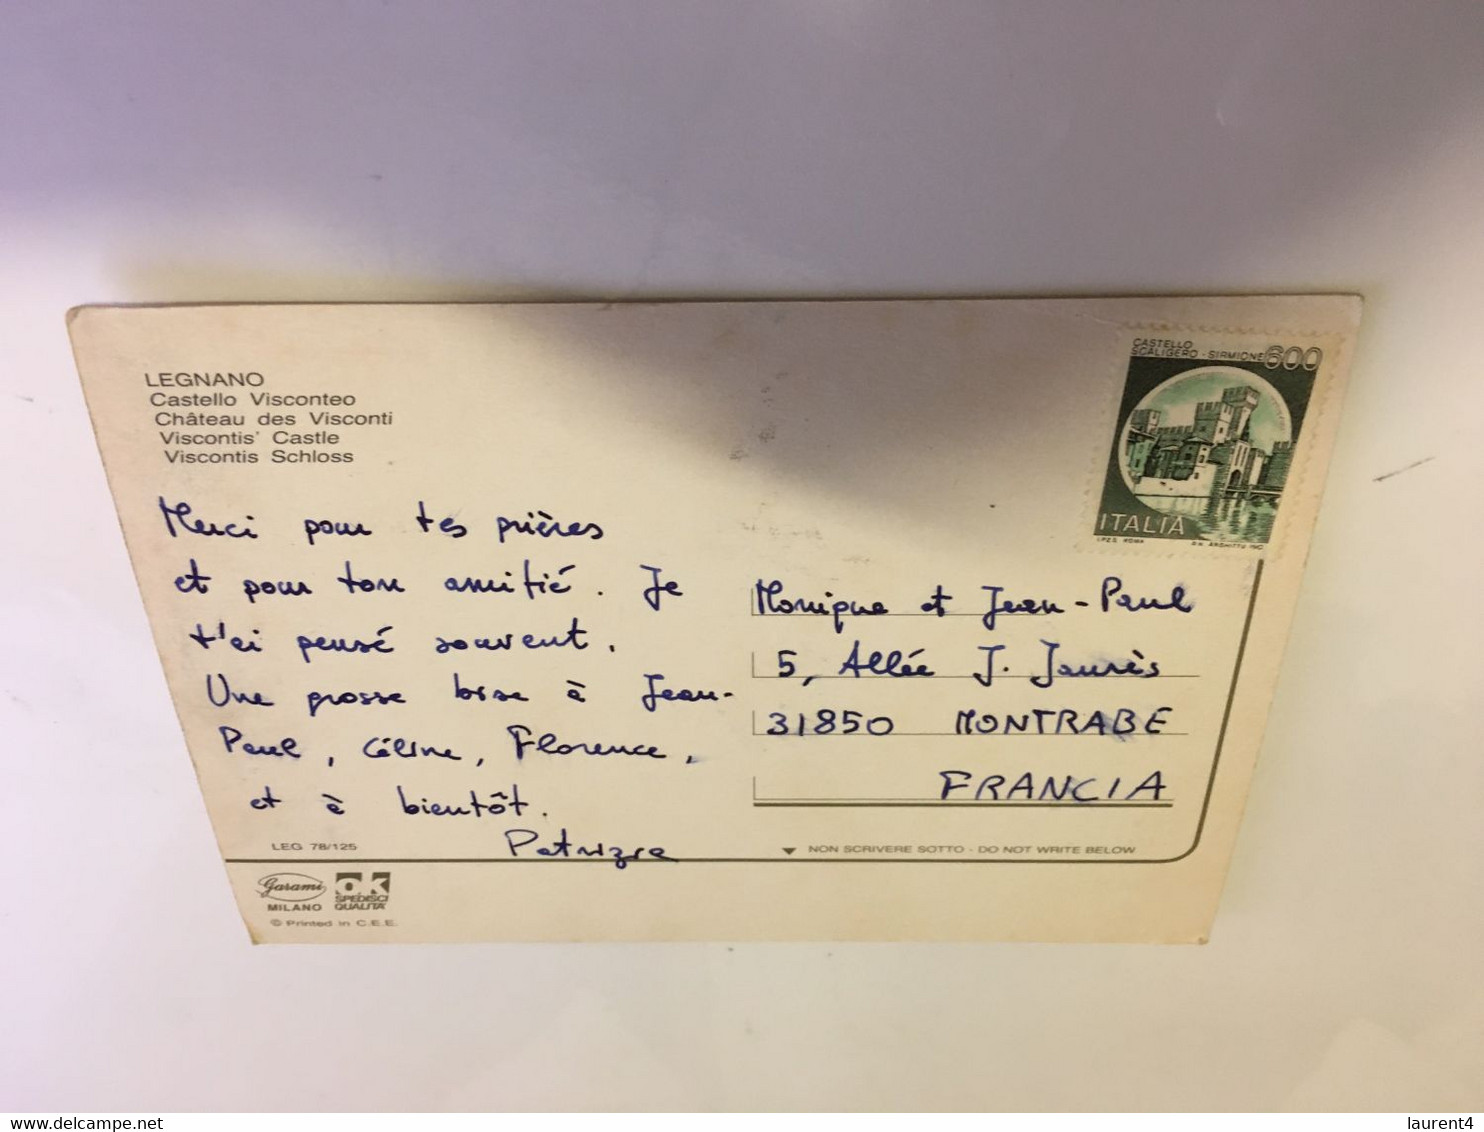 LEGNANO
Castello Visconteo
Château des Visconti
Viscontis' Castle
Viscontis Schloss
CASTELLO
SCALIGERO - SIRMIONE 600
ITALIA
I.P.Z.S. ROMA
Merci pour tes prières
et pour ton amitié. Je
t'ai pensé souvent.
Une grosse bise à Jean-
Paul, Céline, Florence,
et à bientôt.
Patrizia
Monique et Jean-Paul
5, Allée J. Jaurès
31850 MONTRABE
FRANCIA
LEG 78/125
NON SCRIVERE SOTTO - DO NOT WRITE BELOW
Garami
MILANO
OK
SPEDISCI
QUALITA'
© Printed in C.E.E.
www.delcampe.net
laurent4